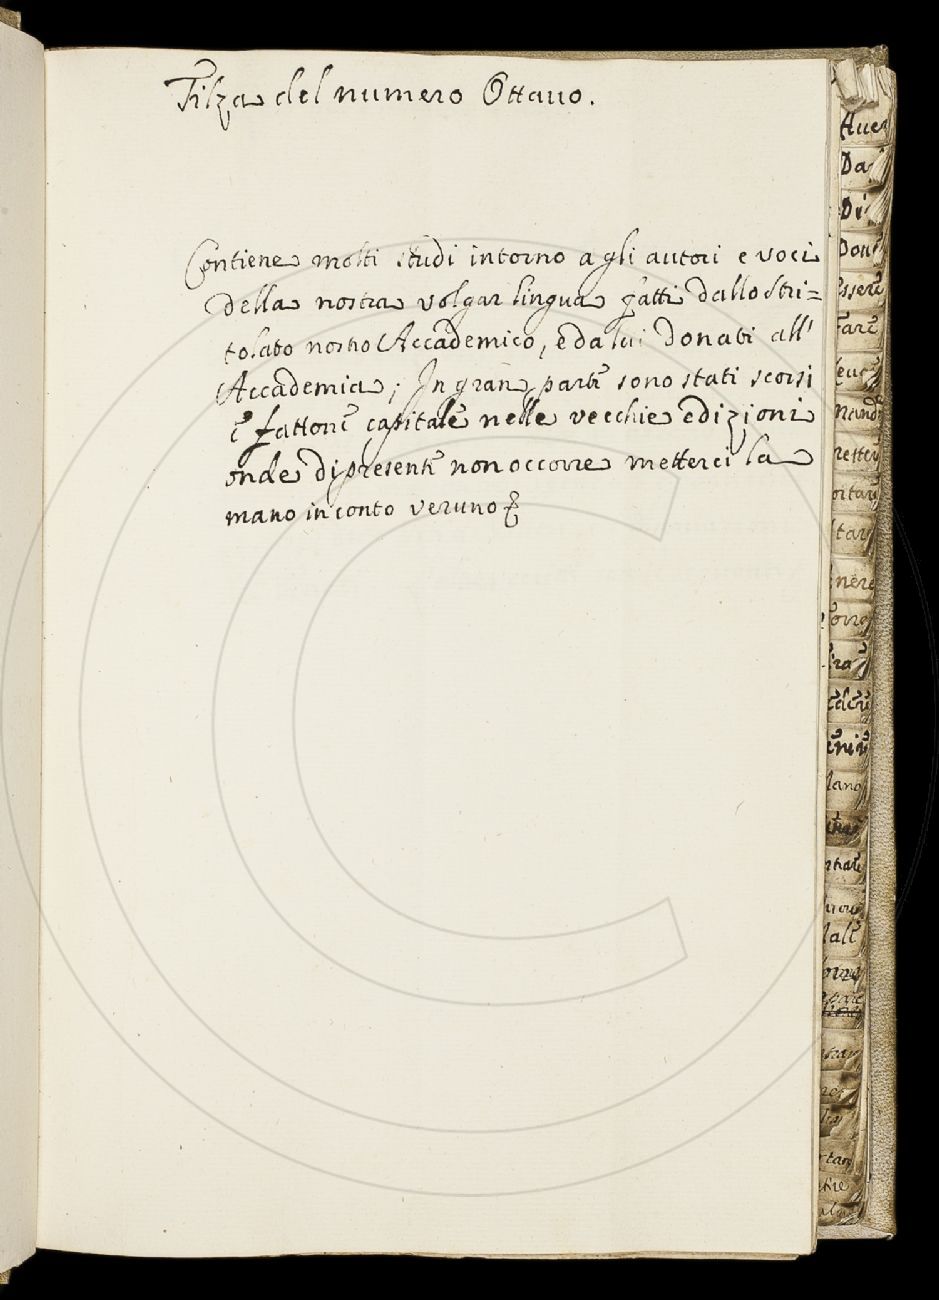 Filza del numero Ottauo.
Contiene molti studi intorno a gli autori e voci
della nostra volgar lingua fatti dallo Stri=
tolato nostro Accademico, e da lui donati all'
Accademia; In gran parte sono stati scorsi
e fattone capitale nelle vecchie edizioni
onde di presente non occorre metterci la
mano in conto veruno
Auer
Da
Di
Don
Essere
Fare
Leua
Mand
metter
ortar
tar
nere
orre